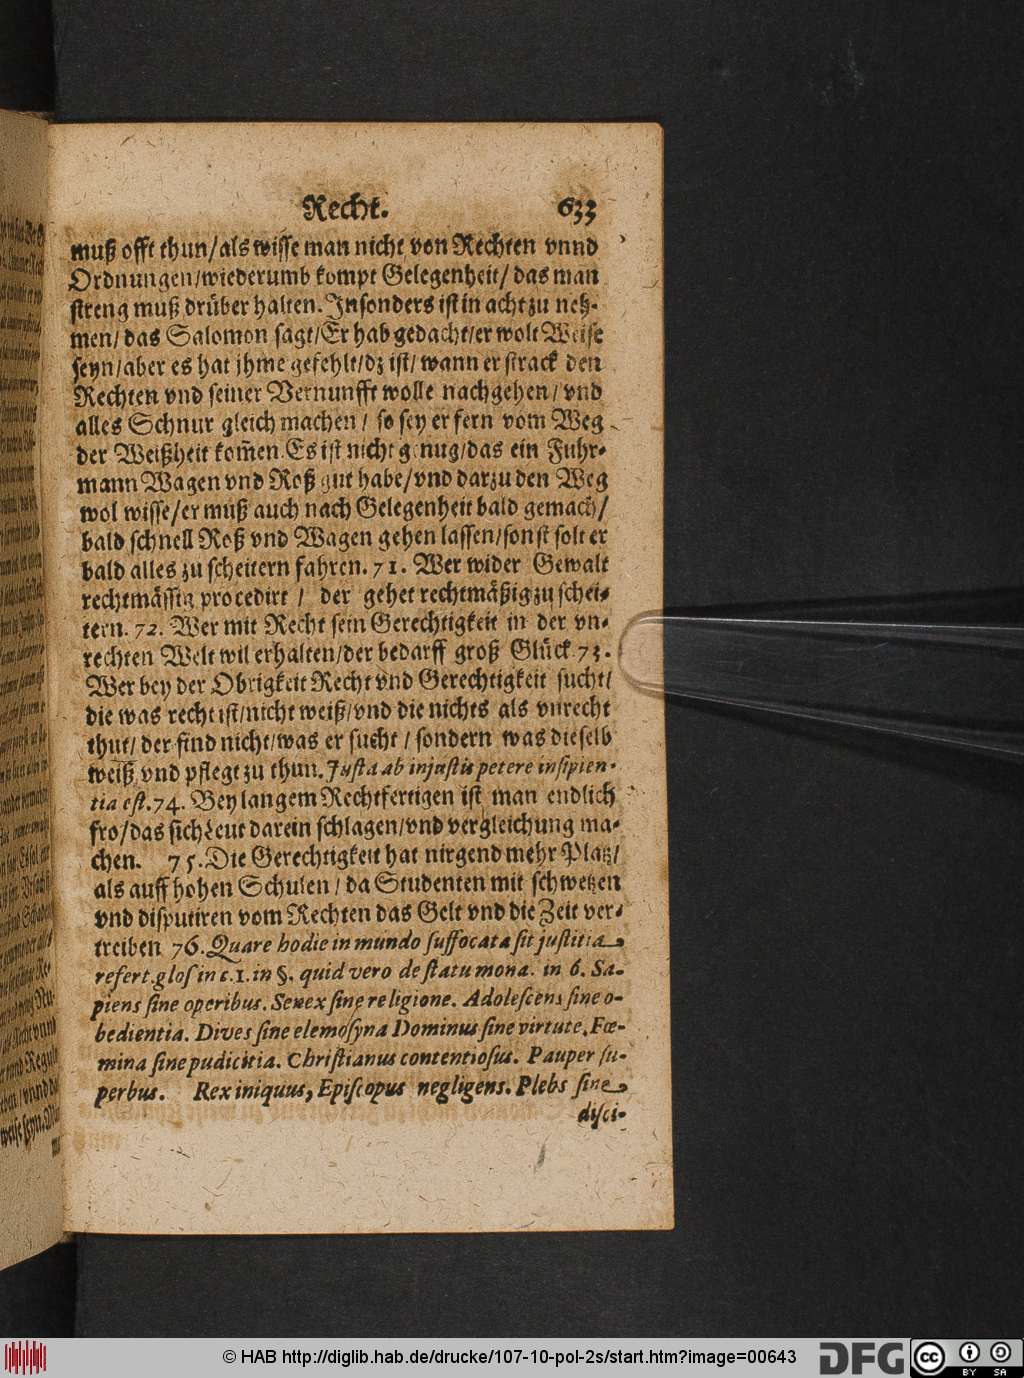 Recht. 633
muß offt thun/als wisse man nicht von Rechten vnnd
Ordnungen/wiederumb kompt Gelegenheit/ das man
streng muß drüber halten. Insonders ist in acht zu neh-
men/ das Salomon sagt/Er hab gedacht/er wolt Weise
seyn/aber es hat jhme gefehlt/dz ist/ wann er strack den
Rechten vnd seiner Vernunfft wolle nachgehen/ vnd
alles Schnur gleich machen/ so sey er fern vom Weg
der Weißheit kom̃en. Es ist nicht genug/das ein Fuhr-
mann Wagen vnd Roß gut habe/vnd darzu den Weg
wol wisse/er muß auch nach Gelegenheit bald gemach/
bald schnell Roß vnd Wagen gehen lassen/sonst solt er
bald alles zu scheitern fahren. 71. Wer wider Gewalt
rechtmässig procedirt / der gehet rechtmäßig zu schei-
tern. 72. Wer mit Recht sein Gerechtigkeit in der vn-
rechten Welt wil erhalten/der bedarff groß Glück. 73.
Wer bey der Obrigkeit Recht vnd Gerechtigkeit sucht/
die was recht ist/nicht weiß/vnd die nichts als vnrecht
thut/ der find nicht/was er sucht / sondern was dieselb
weiß vnd pflegt zu thun. Justa ab injustis petere insipien-
tia est. 74. Bey langem Rechtfertigen ist man endlich
fro/das sich Leut darein schlagen/vnd vergleichung ma-
chen. 75. Die Gerechtigkeit hat nirgend mehr Platz/
als auff hohen Schulen/ da Studenten mit schwetzen
vnd disputiren vom Rechten das Gelt vnd die Zeit ver-
treiben 76. Quare hodie in mundo suffocata sit justitia,
refert. glos in c. 1. in §. quid vero de statu mona. in 6. Sa-
piens sine operibus. Senex sine religione. Adolescens sine o-
bedientia. Dives sine elemosyna Dominus sine virtute. Fœ-
mina sine pudicitia. Christianus contentiosus. Pauper su-
perbus. Rex iniquus, Episcopus negligens. Plebs sine
disci-
© HAB http://diglib.hab.de/drucke/107-10-pol-2s/start.htm?image=00643
DFG
cc BY SA